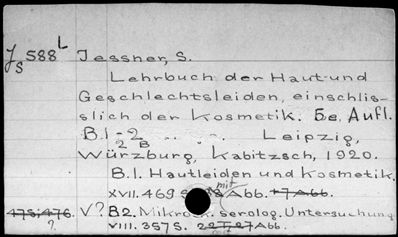 J S 588 L Jessner, S.
Lehrbuch der Haut-und
Geschlechtsleiden, einschlis-
slich der Kosmetik. 5e. Aufl.
B.1-2 Leipzig,
2 B
Würzburg, Kabitzsch, 1920.
B.1. Hautleiden und Kosmetik.
mit
XVII. 469 S Abb. 17 Abb.
475; 476. V? B2. Mikrosk. serolog. Untersuchung
? VIII. 357 S. 22 T, 27 Abb.